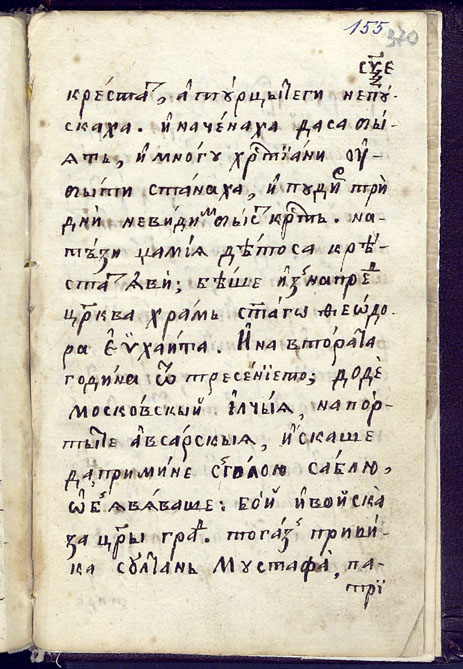 155 370
кре́ста̑, а҆ ту́рцыте ги непу́-
скаха. И҆ наче́наха даса бы́-
ятъ, и҆ мно́гу хрⷭ҇тїа́ни ѹ҆-
би́ти ста́наха, и҆ пуди́ⷬ҇ трѝ
дни̑ неви́диⷨ бы́сⷮ крⷭ҇тъ. на-
тѣ́зи џамі́я дѣ́тоса крѣ́-
ста̑ ꙗ҆вѝ; бѣ́ше и҆знапре́ⷣ
црⷪ҇ква хра́мъ ст҃а́гѡ ѳеѡ́до-
ра є҆ѵхаи́та. И҆ на втора́та
годи́на ѿ тресенїето; доде̑
московскый и҆лчі́я, напо́р-
ты́те а҆вса́рскыя, и҆́скаше
да примине с голою са́блю,
ѡ҆бѧвѧ́ваше: бо́й и҆ во́йска
за цр҃ы гра́ⷣ. тога́зⸯ приви́-
ка султа́нъ Мустафа̀, па-
трї